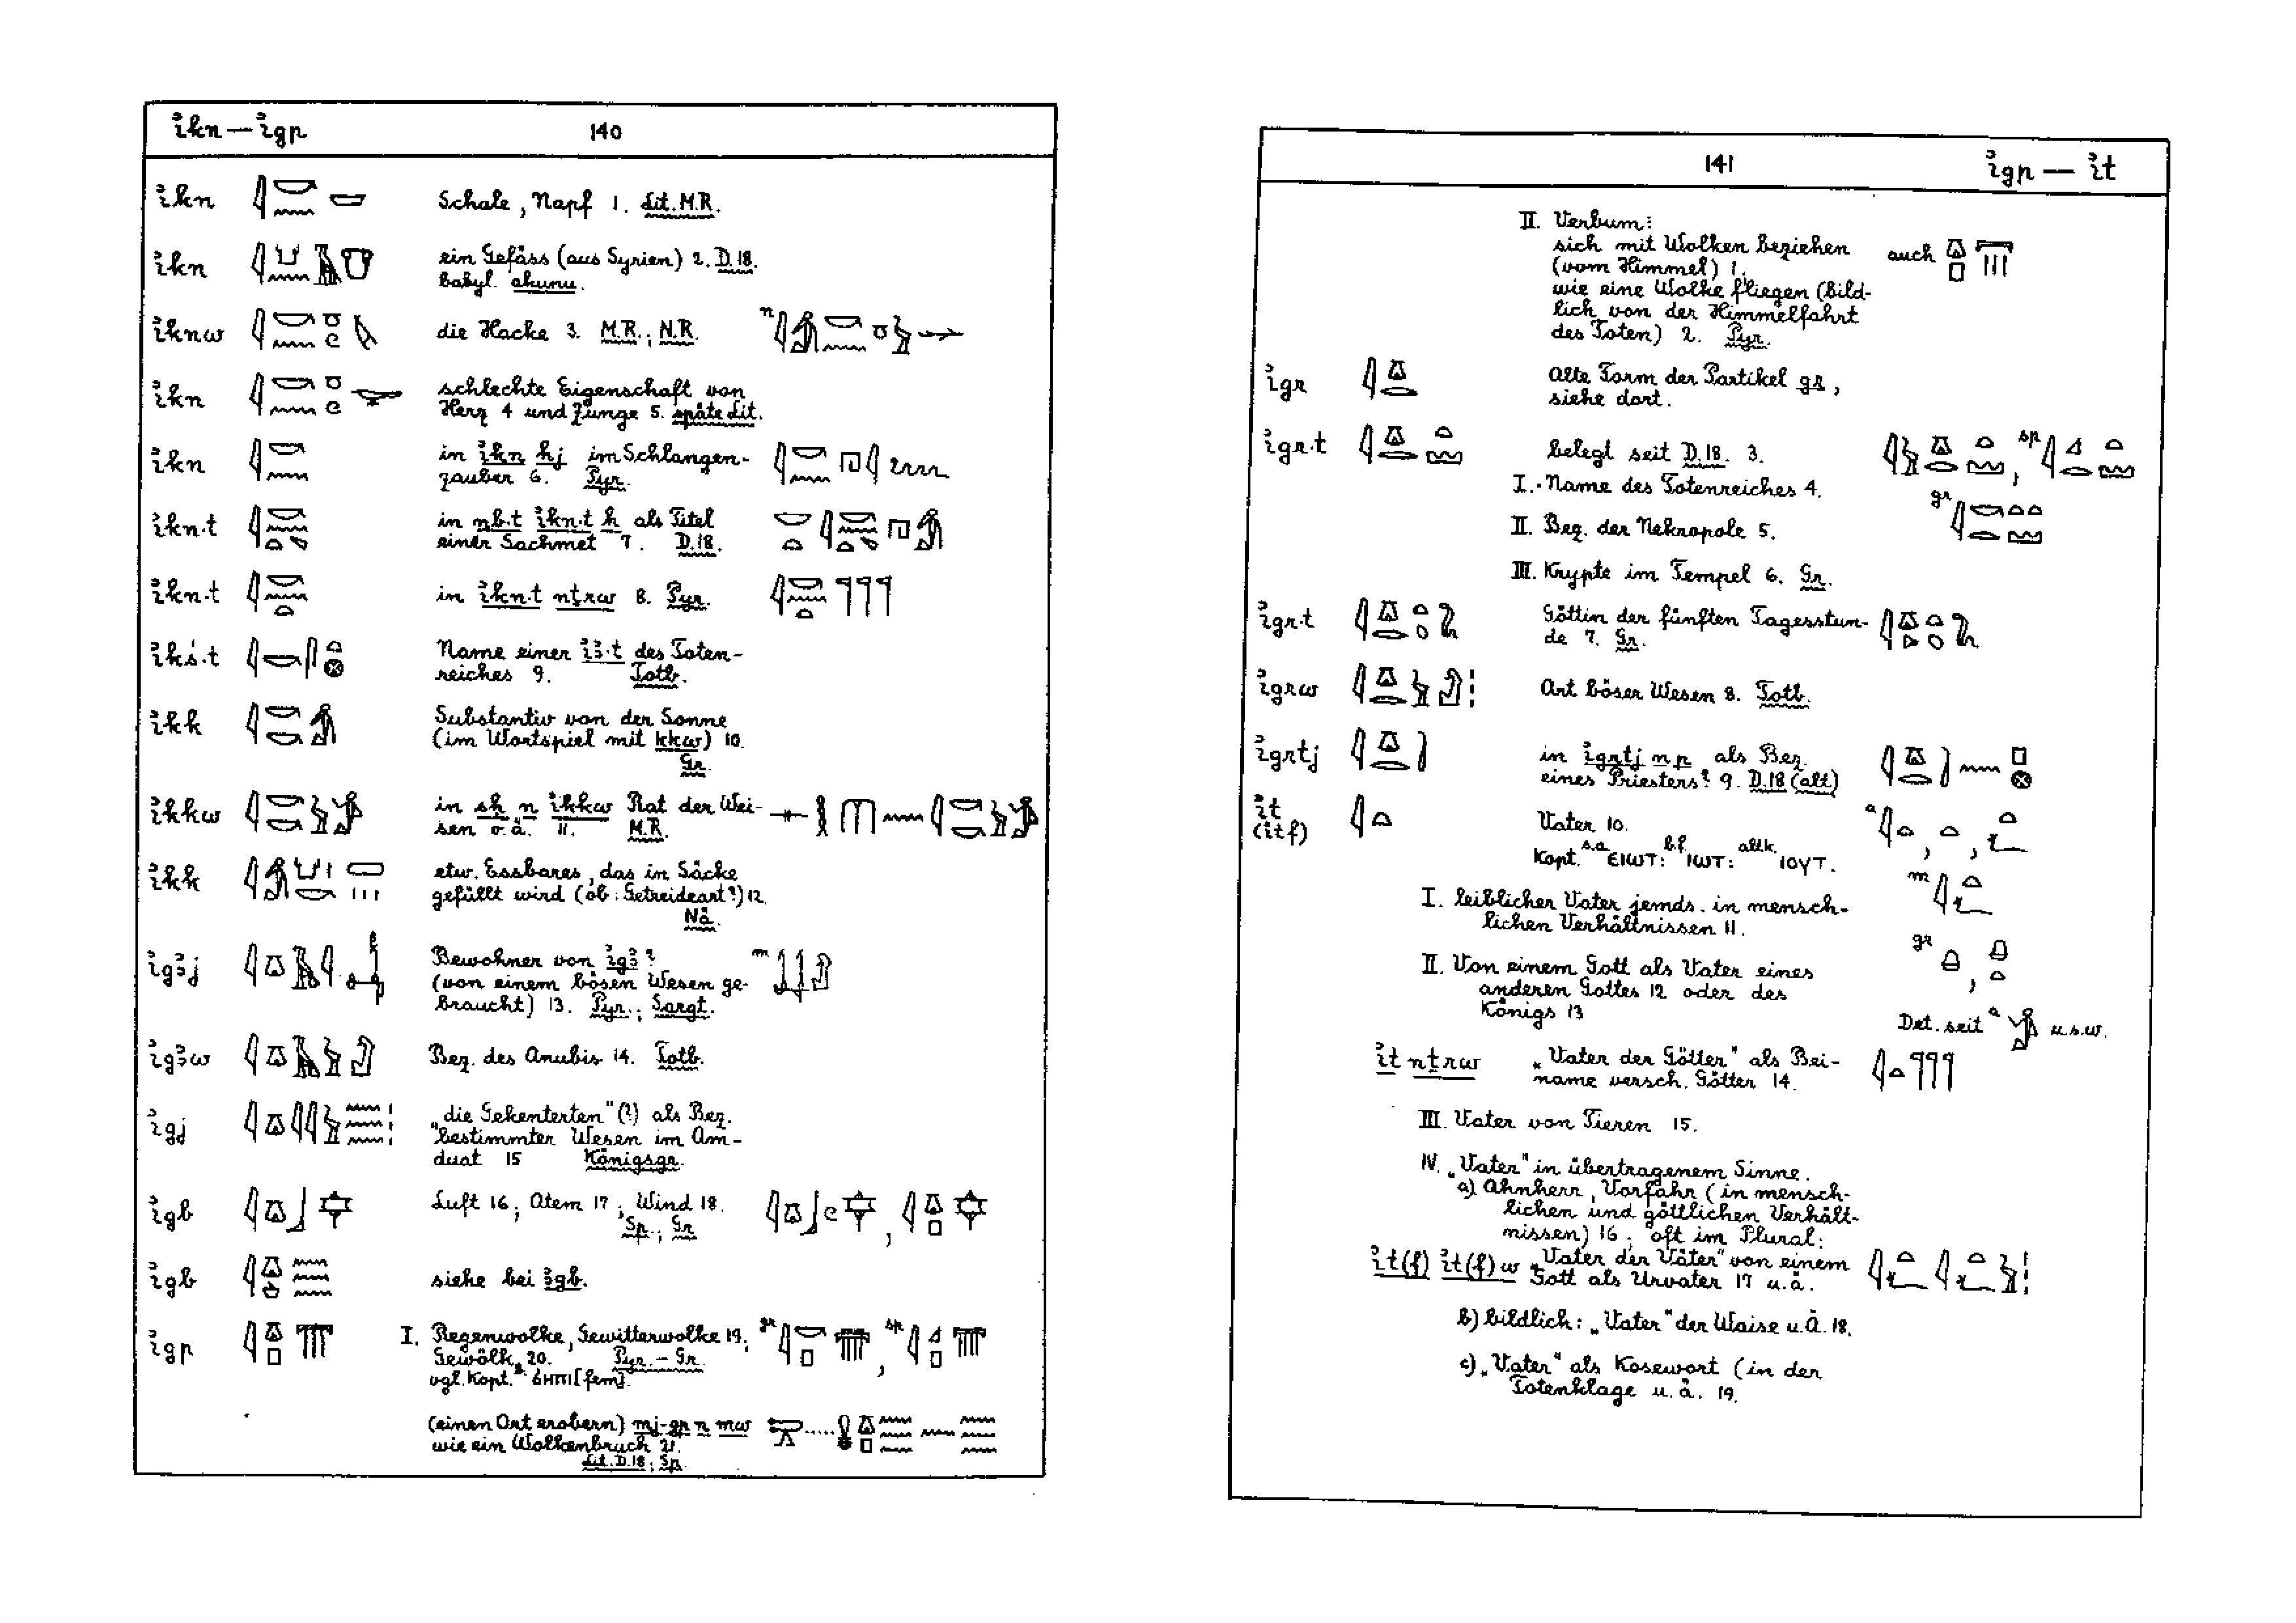 ỉkn — ỉgp 140
ỉkn Schale, Napf 1. Lit. M.R.
ỉkn ein Gefäss (aus Syrien) 2. D.18.
babyl. akunu.
ỉknw die Hacke 3. M.R.; N.R. n
ỉkn schlechte Eigenschaft von
Herz 4 und Zunge 5. späte Lit.
ỉkn in ỉkn hj im Schlangen-
zauber 6. Pyr.
ỉkn.t in nb.t ỉkn.t h als Titel
einer Sachmet 7. D.18.
ỉkn.t in ỉkn.t nṯrw 8. Pyr.
ỉkś.t Name einer ỉꜣ.t des Toten-
reiches 9. Totb.
ỉkk Substantiv von der Sonne
(im Wortspiel mit kkw) 10.
Gr.
ỉkkw in sḥ n ỉkkw Rat der Wei-
sen o.ä. 11. M.R.
ỉkk etw. Essbares, das in Säcke
gefüllt wird (ob: Getreideart?) 12.
Nä.
ỉgꜣj Bewohner von ỉgꜣ? m
(von einem bösen Wesen ge-
braucht) 13. Pyr.; Sargt.
ỉgꜣw Bez. des Anubis 14. Totb.
ỉgj „die Gekenterten" (?) als Bez.
bestimmter Wesen im Am-
duat 15 Königsgr.
ỉgb Luft 16; Atem 17; Wind 18.
Sp.; Gr.
ỉgb siehe bei ꜣgb.
ỉgp I. Regenwolke, Gewitterwolke 19; gr , sp
Gewölk 20. Pyr. – Gr.
vgl. Kopt. B ϭΗΠΙ [fem].
(einen Ort erobern) mj-gp n mw
wie ein Wolkenbruch 21.
Lit. D.18; Sp.
141 ỉgp — ỉt
II. Verbum:
sich mit Wolken beziehen auch
(vom Himmel) 1.
wie eine Wolke fliegen (bild-
lich von der Himmelfahrt
des Toten) 2. Pyr.
ỉgr Alte Form der Partikel gr,
siehe dort.
ỉgr.t belegt seit D.18. 3. , sp
I. Name des Totenreiches 4.
gr
II. Bez. der Nekropole 5.
III. Krypte im Tempel 6. Gr.
ỉgr.t Göttin der fünften Tagesstun-
de 7. Gr.
ỉgrw Art böser Wesen 8. Totb.
ỉgrtj in ỉgrtj n p als Bez.
eines Priesters? 9. D.18 (alt)
ỉt
(ỉtf) Vater 10. a , ,
Kopt. s.a. ЄΙѠΤ: b.f. ΙѠΤ: altk. ΙΟΥΤ.
m
I. leiblicher Vater jemds. in mensch-
lichen Verhältnissen 11.
gr ,
II. Von einem Gott als Vater eines
anderen Gottes 12 oder des
Königs 13
Det. seit a u.s.w.
ỉt nṯrw „Vater der Götter" als Bei-
name versch. Götter 14.
III. Vater von Tieren 15.
IV. „Vater" in übertragenem Sinne.
a) Ahnherr, Vorfahr (in mensch-
lichen und göttlichen Verhält-
nissen) 16; oft im Plural:
ỉt(f) ỉt(f)w „Vater der Väter" von einem
Gott als Urvater 17 u.ä.
b) bildlich: „Vater" der Waise u.Ä. 18.
c) „Vater" als Kosewort (in der
Totenklage u.ä. 19.